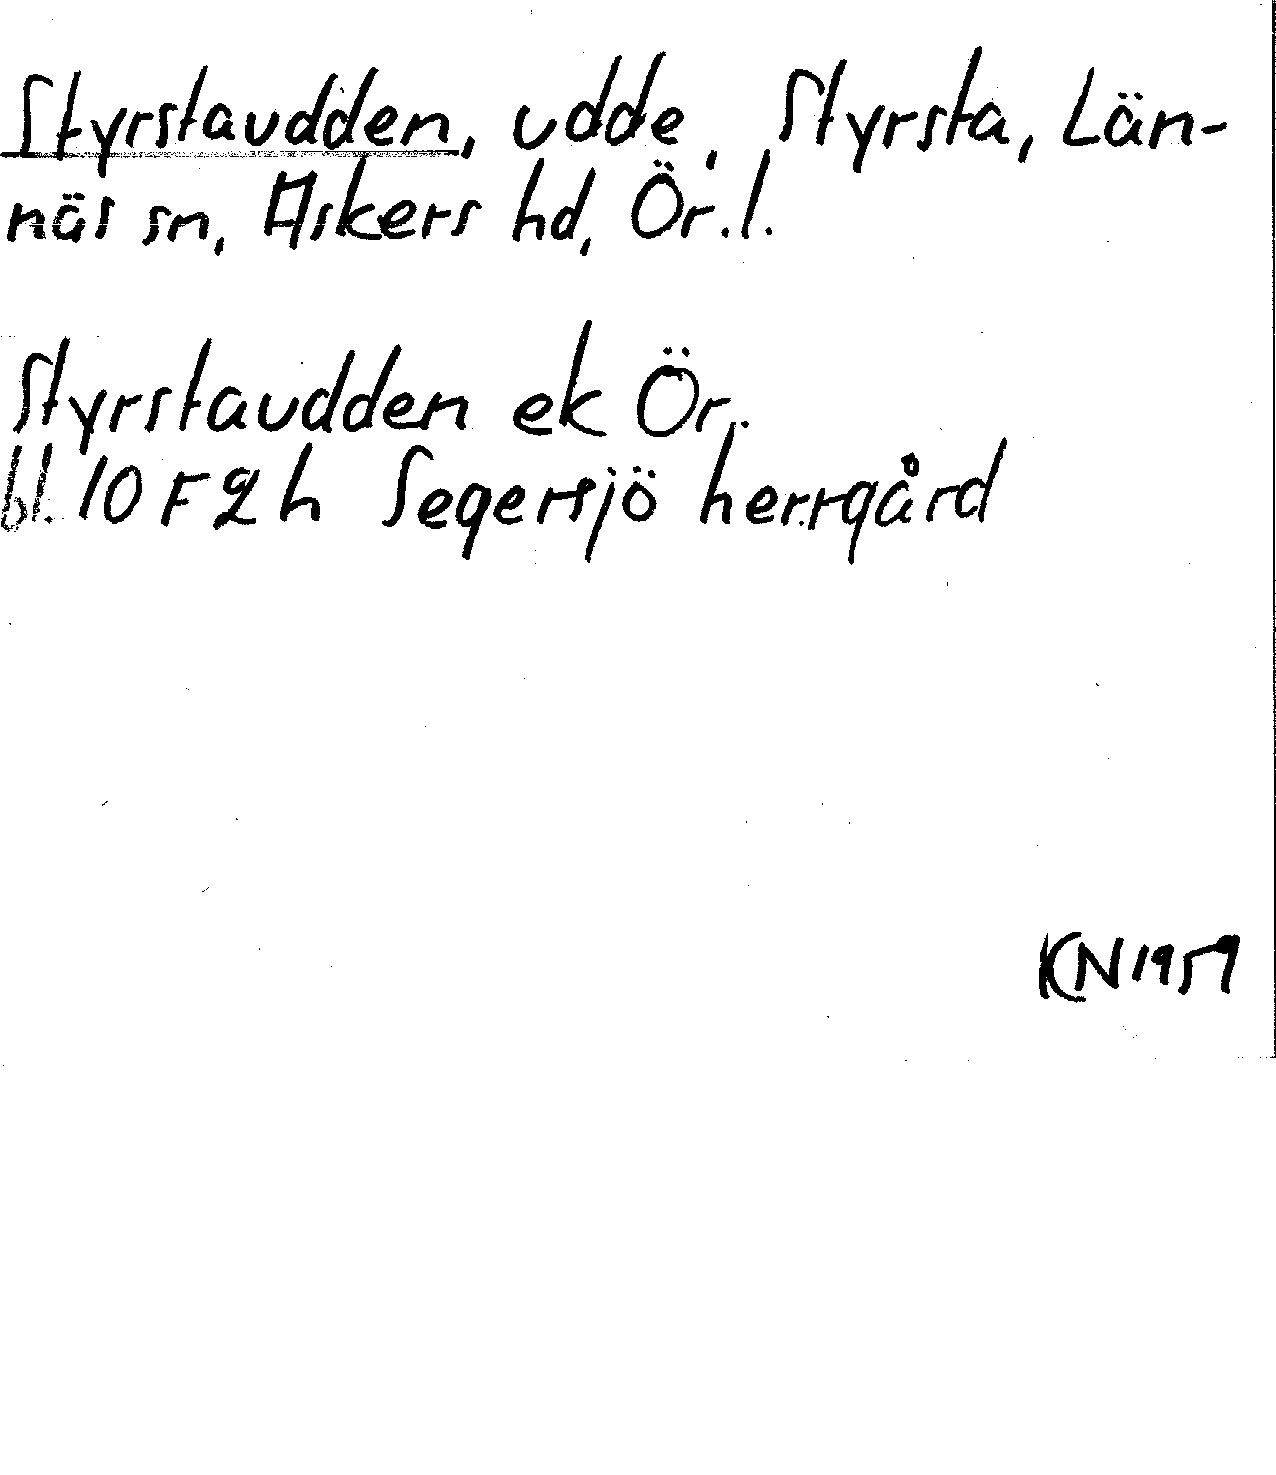 Styrstaudden, udde, Styrsta, Län-
näs sn, Askers hd, Ör.l.
Styrstaudden ek Ör.
bl. 10 F 2 h Segersjö herrgård
KCN 1959